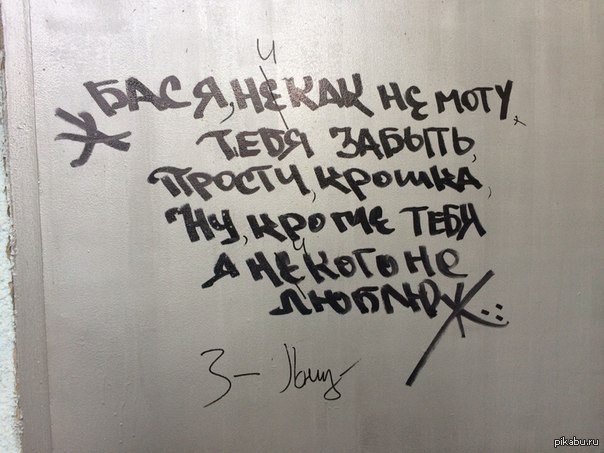 и
БАСЯ, НЕКАК НЕ МОГУ
ТЕБЯ ЗАБЫТЬ,
ПРОСТИ, КРОШКА,
НУ, КРОМЕ ТЕБЯ
и
Я НЕКОГО НЕ
ЛЮБЛЮ
3-
pikabu.ru